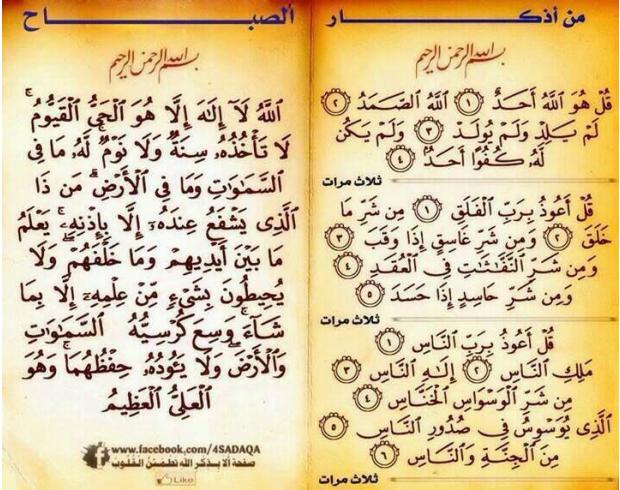 من أذكــــــار الصبــــــاح
بسم الله الرحمن الرحيم
قُلْ هُوَ ٱللَّهُ أَحَدٌ ١ ٱللَّهُ ٱلصَّمَدُ ٢
لَمْ يَلِدْ وَلَمْ يُولَدْ ٣ وَلَمْ يَكُن
لَّهُۥ كُفُوًا أَحَدٌۢ ٤
ثلاث مرات
قُلْ أَعُوذُ بِرَبِّ ٱلْفَلَقِ ١ مِن شَرِّ مَا
خَلَقَ ٢ وَمِن شَرِّ غَاسِقٍ إِذَا وَقَبَ ٣
وَمِن شَرِّ ٱلنَّفَّٰثَٰتِ فِى ٱلْعُقَدِ ٤
وَمِن شَرِّ حَاسِدٍ إِذَا حَسَدَ ٥
ثلاث مرات
قُلْ أَعُوذُ بِرَبِّ ٱلنَّاسِ ١
مَلِكِ ٱلنَّاسِ ٢ إِلَٰهِ ٱلنَّاسِ ٣
مِن شَرِّ ٱلْوَسْوَاسِ ٱلْخَنَّاسِ ٤
ٱلَّذِى يُوَسْوِسُ فِى صُدُورِ ٱلنَّاسِ ٥
مِنَ ٱلْجِنَّةِ وَٱلنَّاسِ ٦
ثلاث مرات
بسم الله الرحمن الرحيم
ٱللَّهُ لَآ إِلَٰهَ إِلَّا هُوَ ٱلْحَىُّ ٱلْقَيُّومُ ۚ
لَا تَأْخُذُهُۥ سِنَةٌ وَلَا نَوْمٌ ۚ لَّهُۥ مَا فِى
ٱلسَّمَٰوَٰتِ وَمَا فِى ٱلْأَرْضِ ۗ مَن ذَا
ٱلَّذِى يَشْفَعُ عِندَهُۥٓ إِلَّا بِإِذْنِهِۦ ۚ يَعْلَمُ
مَا بَيْنَ أَيْدِيهِمْ وَمَا خَلْفَهُمْ ۖ وَلَا
يُحِيطُونَ بِشَىْءٍ مِّنْ عِلْمِهِۦٓ إِلَّا بِمَا
شَآءَ ۚ وَسِعَ كُرْسِيُّهُ ٱلسَّمَٰوَٰتِ
وَٱلْأَرْضَ ۖ وَلَا يَـُٔودُهُۥ حِفْظُهُمَا ۚ وَهُوَ
ٱلْعَلِىُّ ٱلْعَظِيمُ
www.facebook.com/4SADAQA
صفحة ألا بذكر الله تطمئن القلوب
Like